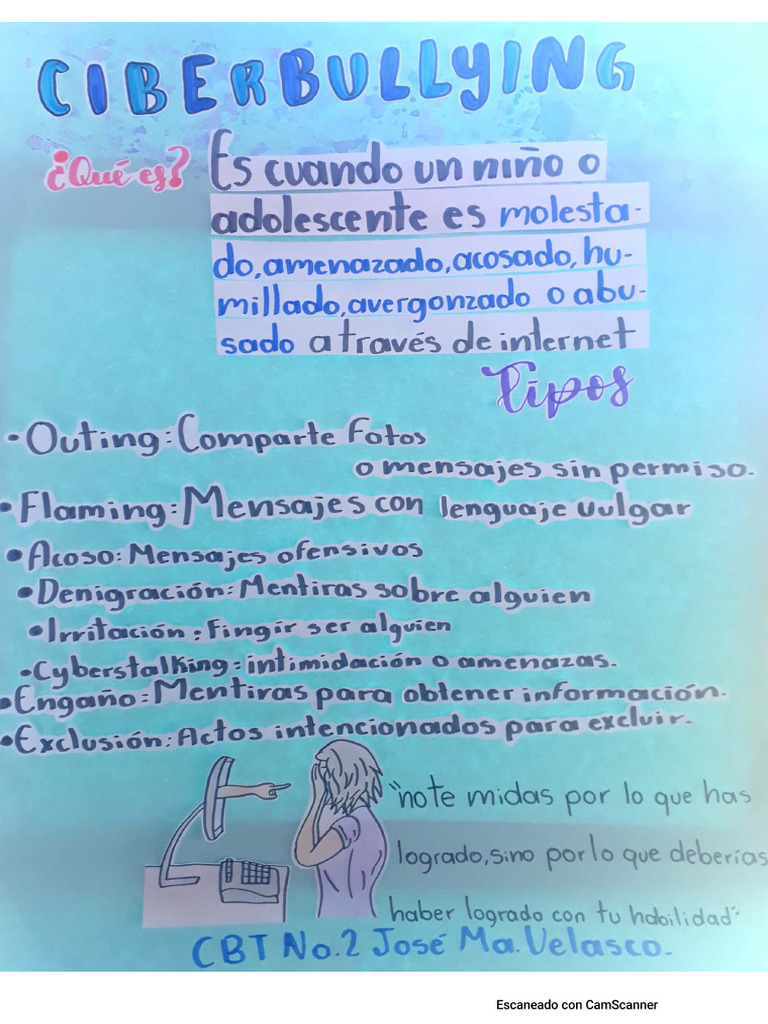 CIBERBULLYING
¿Qué es? Es cuando un niño o
adolescente es molesta-
do, amenazado, acosado, hu-
millado, avergonzado o abu-
sado a través de internet
Tipos
• Outing: Comparte fotos
o mensajes sin permiso.
• Flaming: Mensajes con lenguaje vulgar
• Acoso: Mensajes ofensivos
• Denigración: Mentiras sobre alguien
• Irritación: Fingir ser alguien
• Cyberstalking: intimidación o amenazas.
• Engaño: Mentiras para obtener información.
• Exclusión: Actos intencionados para excluir.
"no te midas por lo que has
logrado, sino por lo que deberías
haber logrado con tu habilidad"
CBT No. 2 José Ma. Velasco.
Escaneado con CamScanner